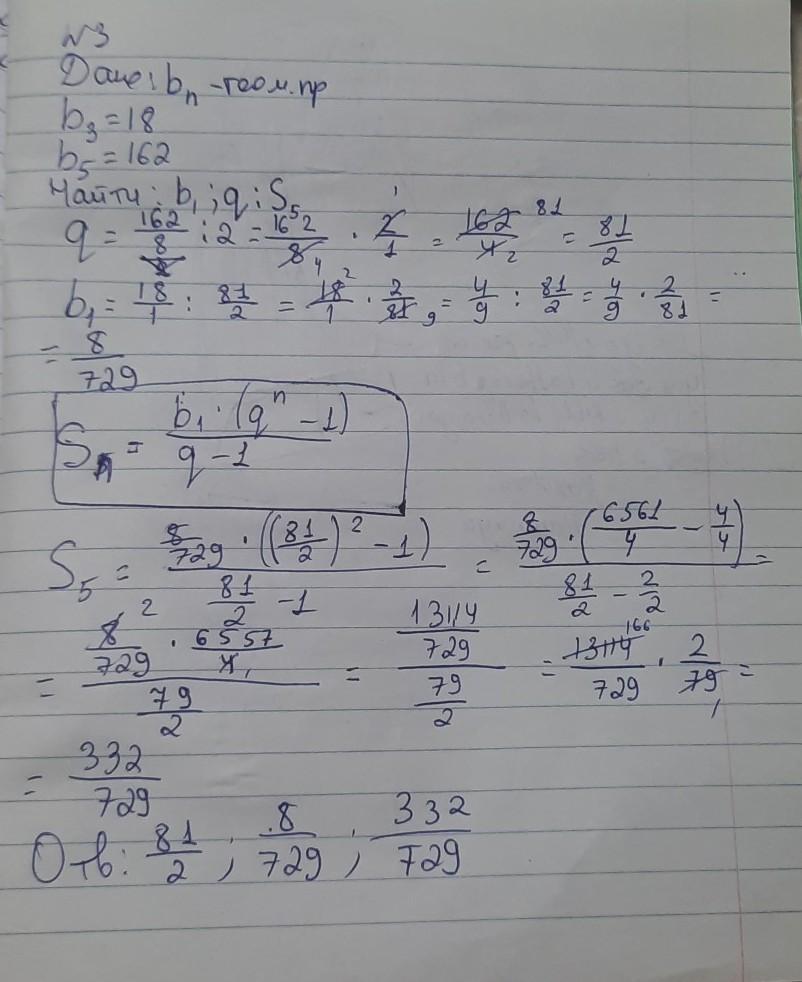 №3
Дано: bₙ - геом.пр
b₃ = 18
b₅ = 162
Найти: b₁; q; S₅
q = 162/8 : 2 = 162/8 4 · 2/1 = 162/4 2 81 = 81/2
b₁ = 18/1 : 81/2 = 18/1 2 · 2/81 9 = 4/9 : 81/2 = 4/9 · 2/81 =
= 8/729
Sₙ = b₁ · (qⁿ - 1)/q - 1
S₅ = 8/729 · ((81/2)² - 1)/81/2 - 1 = 8/729 · (6561/4 - 4/4)/81/2 - 2/2 =
= 8/729 2 · 6557/4 1/79/2 = 13114/729/79/2 = 13114/729 166 · 2/79 1 =
= 332/729
Отв: 81/2; 8/729; 332/729